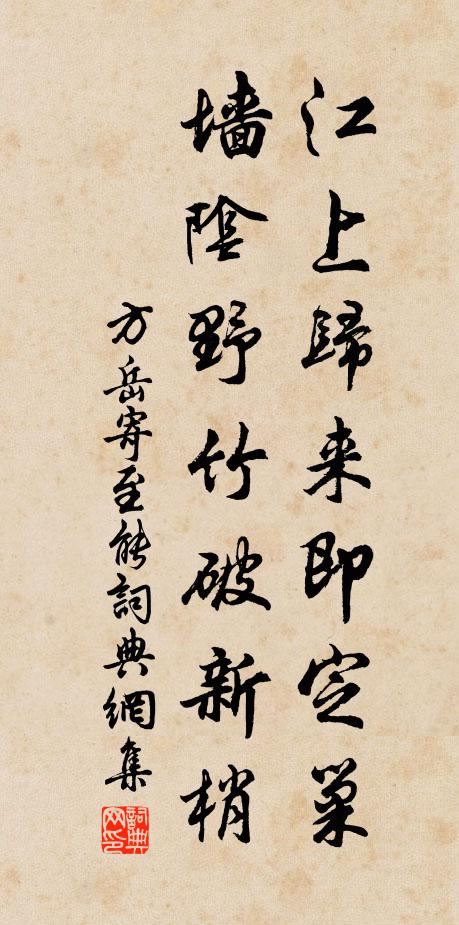 江上歸来即定巢
墻陰野竹破新梢
方岳寄至能詞典網集
詞典网印